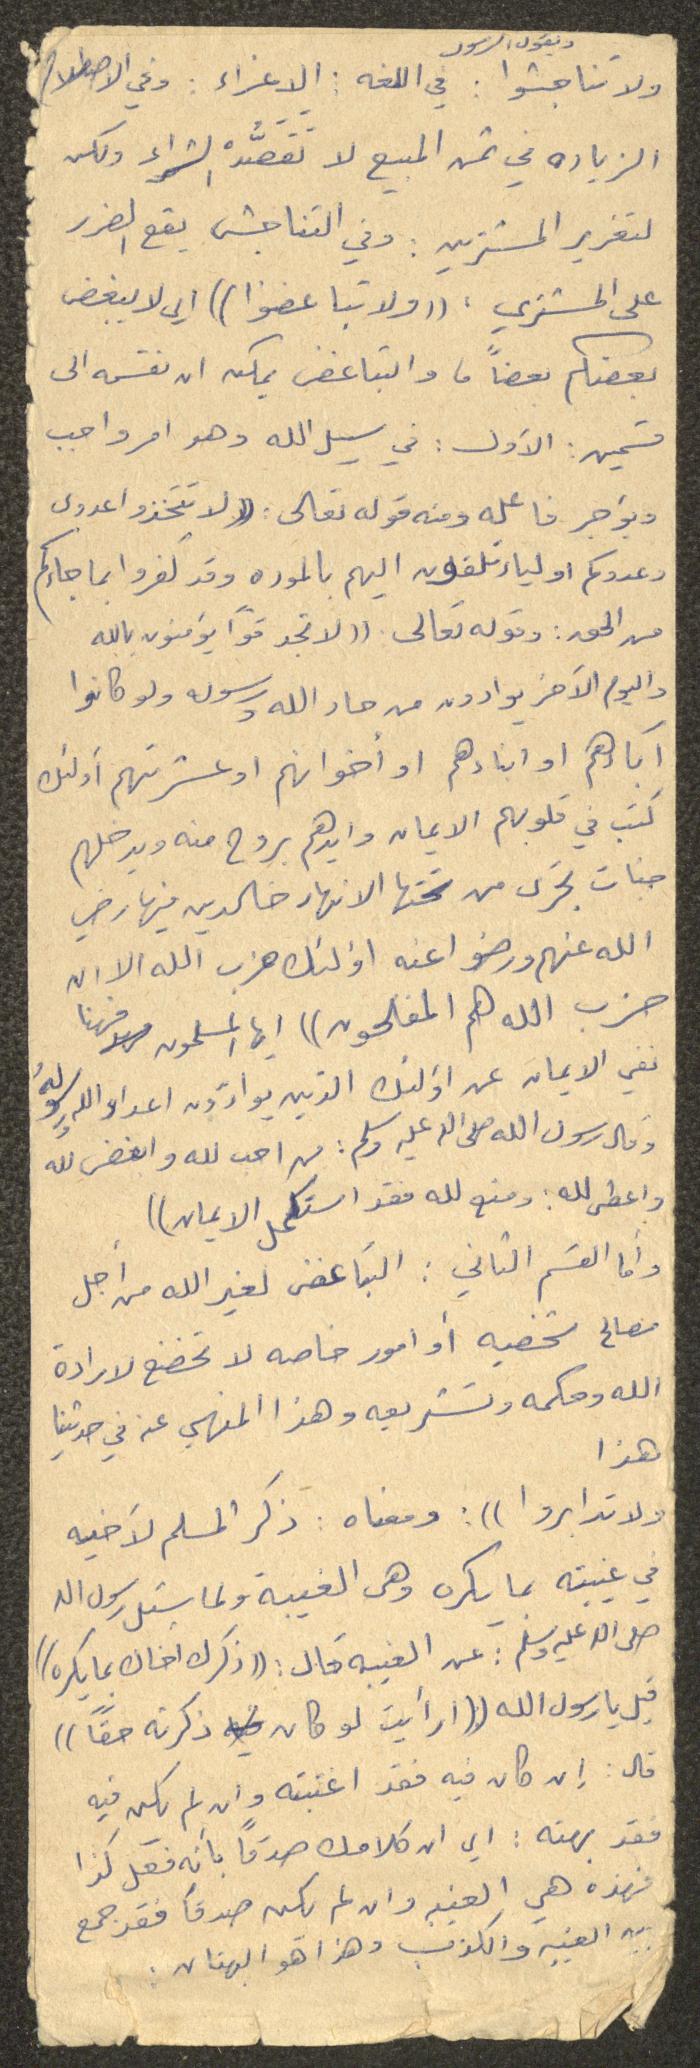 ويقول الرسول
ولا تناجشوا : في اللغه : الاغراء : وفي الاصطلاح
الزياده في ثمن المبيع لا تَقَصُّدْه الشراء ولكن
لتغرير المشترين : وفي التناجش يقع الضرر
على المشتري ، ((ولا تباغضوا)) اي لا يبغض
بعضكم بعضاً ما والتباغض يمكن ان نقسمه الى
قسمين : الأول : في سبيل الله وهو امر واجب
ويؤجر فاعله ومنه قوله تعالى : ((لا تتخذوا عدوى
وعدوكم اولياء تلقون اليهم بالموده وقد كفروا بما جاءكم
من الحق : وقوله تعالى ((لا تجد قوماً يؤمنون بالله
واليوم الآخر يوادون من حاد الله ورسوله ولو كانوا
آباءهم او ابناءهم او أخوانهم او عشرتهم أولئك
كتب في قلوبهم الايمان وايدهم بروح منه ويدخلهم
جنات تجرى من تحتها الانهار خالدين فيها رضي
الله عنهم ورضوا عنه اولئك حزب الله الا ان
حزب الله هم المفلحون)) ايها المسلمون فهنا
نفي الايمان عن اولئك الذين يوادّون اعداء الله ورسولهُ
وقال رسول الله صلى الله عليه وسلم : من احب لله وابغض لله
واعطى لله : ومنع لله فقد استكمل الايمان))
وأما القسم الثاني : التباغض لغير الله من أجل
مصالح شخصيه أو امور خاصه لا تخضع لارادة
الله وحكمه وتشريعه وهذا المنهي عنه في حديثنا
هذا
ولا تدابروا)) : ومعناه : ذكر المسلم لأخيه
في غيبته بما يكره وهى الغيبة ولما سئل رسول الله
صلى الله عليه وسلم : عن الغيبه قال : ((ذكرك اخاك بما يكره))
قيل يا رسول الله ((ارأيت لو كان فيه ذكرته حقاً))
قال : إن كان فيه فقد اغتبته وان لم يكن فيه
فقد بهته : اي ان كلامك صدقاً بأنه فعل كذا
فهذه هي الغيبه وان لم يكن صدقاً فقد جمع
بين الغيبه والكذب وهذا هو البهتان :